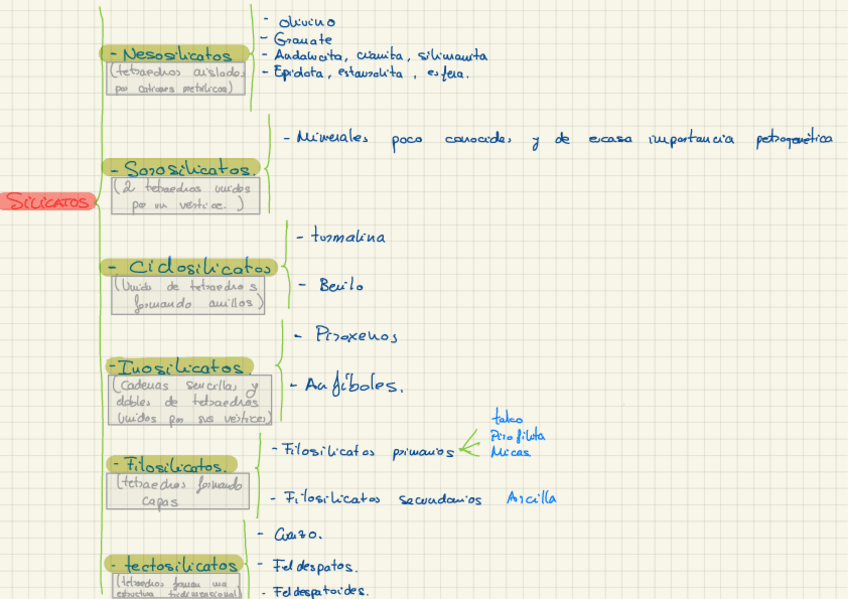 SILICATOS
- Nesosilicatos
(tetraedros aislados
por cationes metálicos)
- Olivino
- Granate
- Andalucita, cianita, silimanita
- Epidota, estaurolita, esfera.
- Sorosilicatos.
(2 tetraedros unidos
por un vértice.)
- Minerales poco conocidos y de escasa importancia petrogenética
- Ciclosilicatos
(Unión de tetraedros
formando anillos)
- turmalina
- Berilo
- Inosilicatos.
(Cadenas sencillas y
dobles de tetraedros
unidos por sus vértices)
- Piroxenos
- Anfíboles.
- Filosilicatos.
(tetraedros formando
capas
- Filosilicatos primarios
talco
Pirofilita
Micas
- Filosilicatos secundarios Arcilla
- tectosilicatos
(tetraedros forman una
estructura tridimensional)
- Cuarzo.
- Feldespatos.
- Feldespatoides.